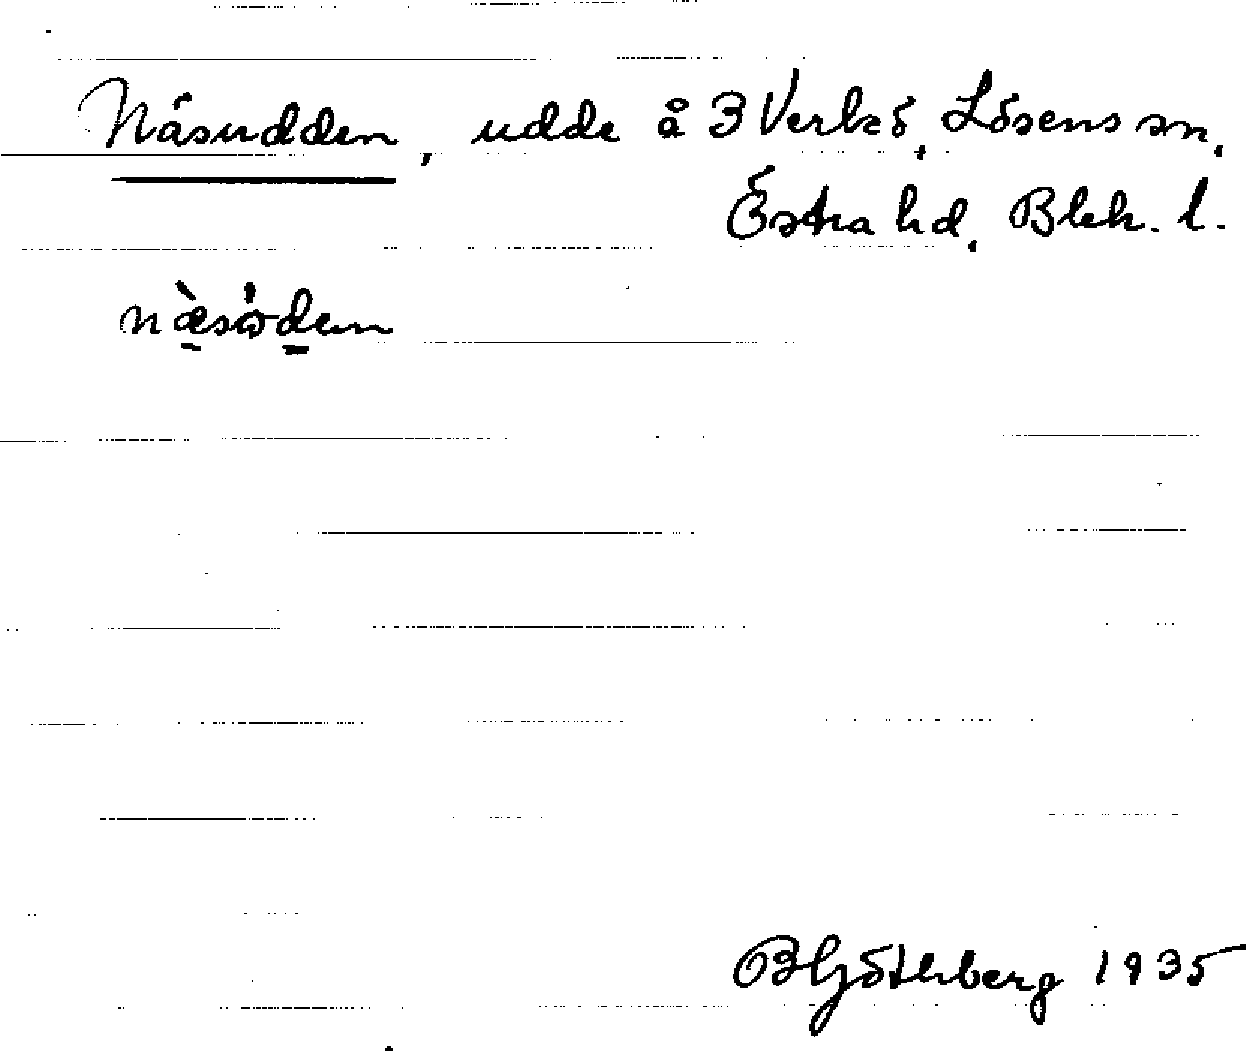 Näsudden, udde å 3 Verkö, Lösens sn,
Östra hd, Blek. l.
BGötherberg 1935